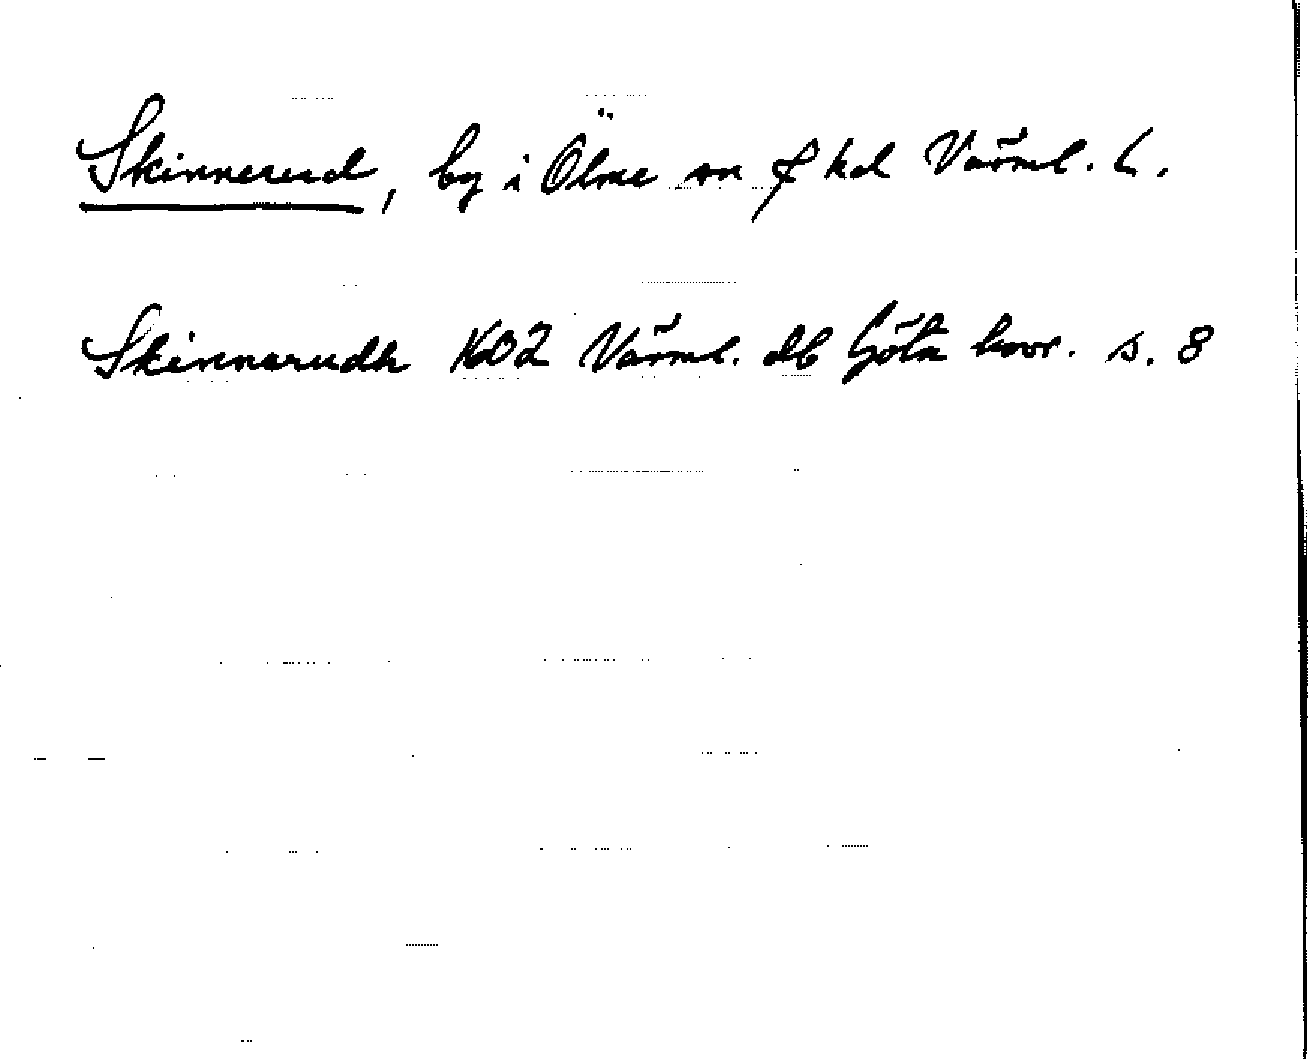 Skinnerud, by i Ölme sn f hd Värml. l.
Skinnarudh 1602 Värml. db Göta hovr. s. 8